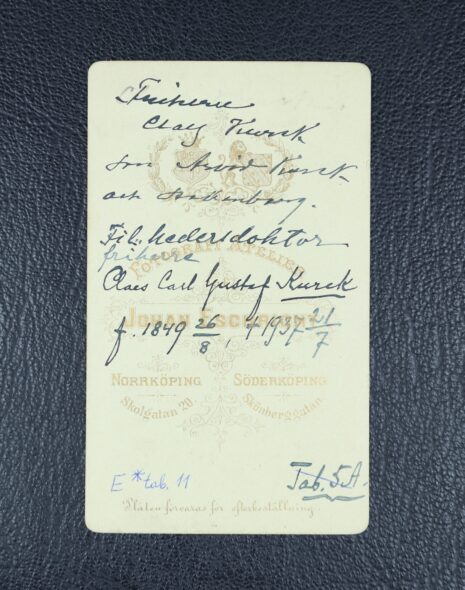 Friherre
Claes Kurck
son Arvid Kurck
och
Fil. hedersdoktor
friherre
FOTOGRAFI ATELIER
Claes Carl Gustaf Kurck
JOHAN ESCHRICHT
f. 1849 26/8, † 1937 21/7
NORRKÖPING SÖDERKÖPING
Skolgatan 20. Skönberggatan
E * tab. 11
Tab. 5A.
Plåten förvaras för efterbeställning.